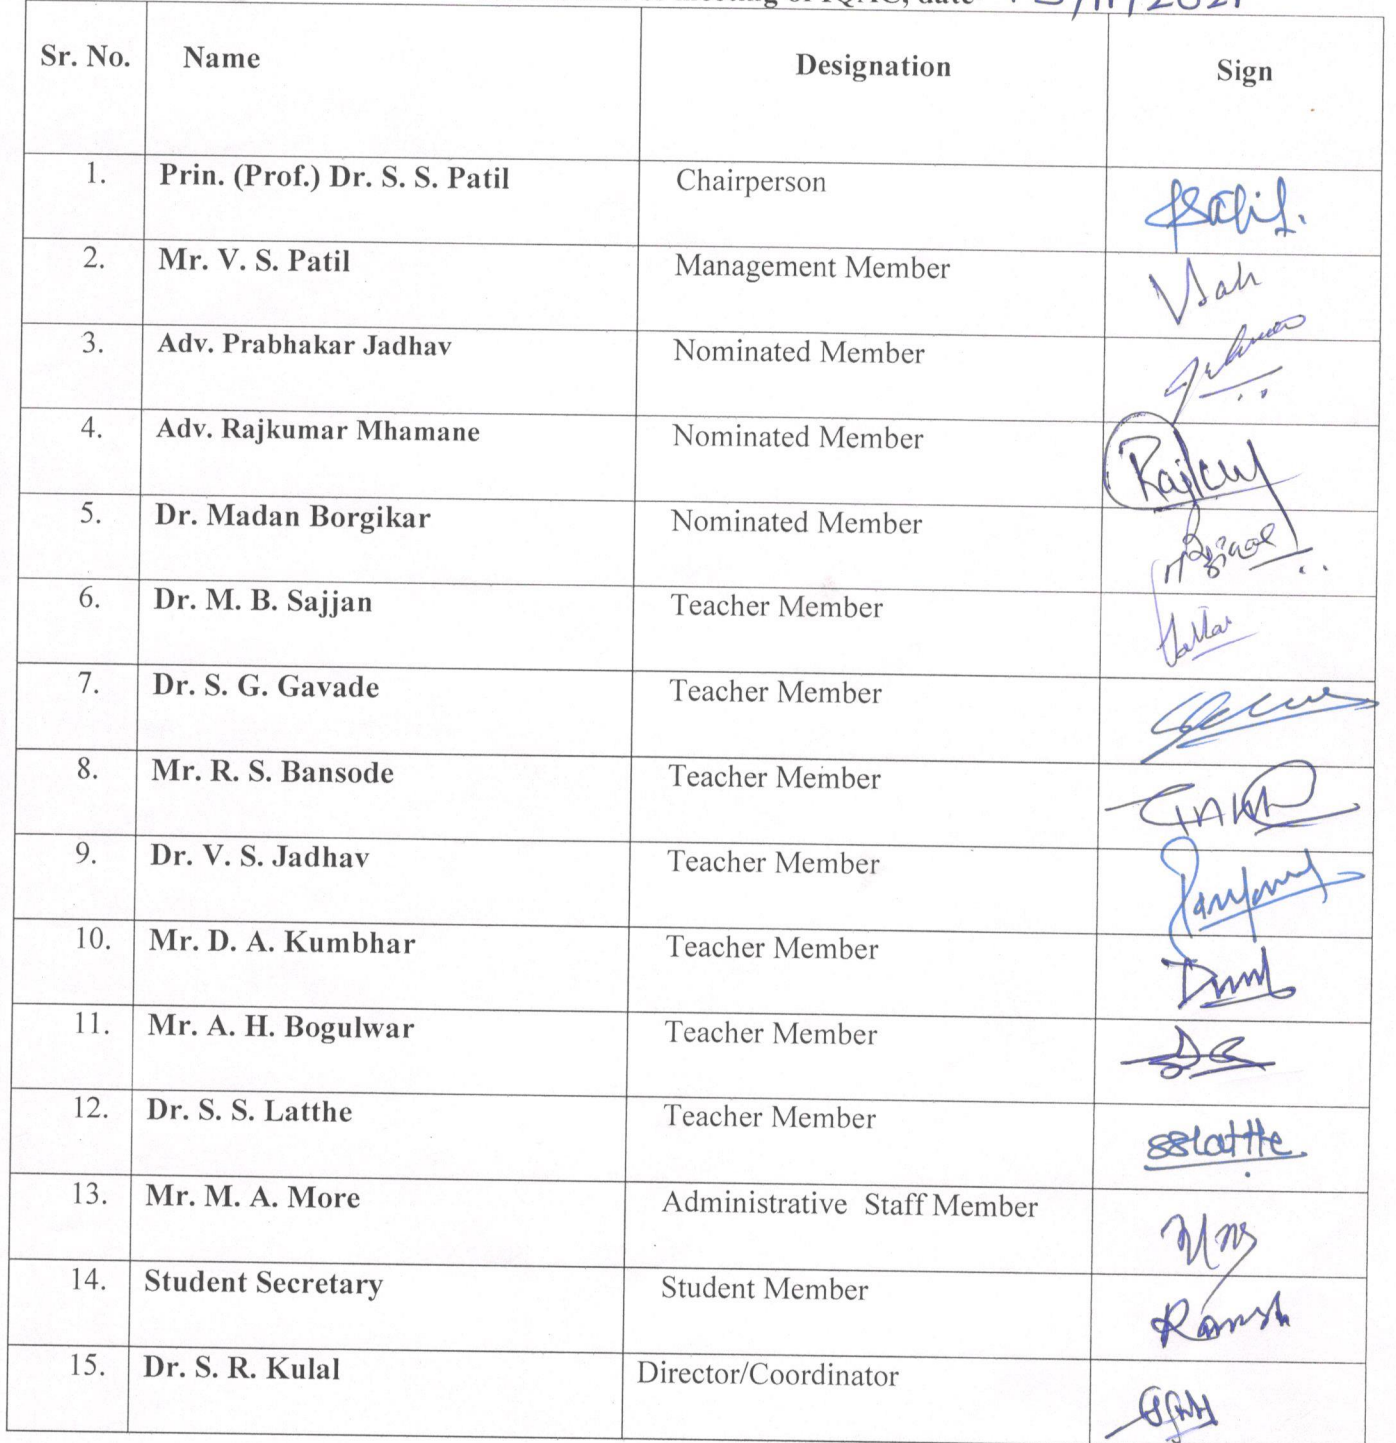 meeting of IQAC, date /11/2021
Sr. No. Name Designation Sign
1. Prin. (Prof.) Dr. S. S. Patil Chairperson
2. Mr. V. S. Patil Management Member
3. Adv. Prabhakar Jadhav Nominated Member
4. Adv. Rajkumar Mhamane Nominated Member
5. Dr. Madan Borgikar Nominated Member
6. Dr. M. B. Sajjan Teacher Member
7. Dr. S. G. Gavade Teacher Member
8. Mr. R. S. Bansode Teacher Member
9. Dr. V. S. Jadhav Teacher Member
10. Mr. D. A. Kumbhar Teacher Member
11. Mr. A. H. Bogulwar Teacher Member
12. Dr. S. S. Latthe Teacher Member sslatthe.
13. Mr. M. A. More Administrative Staff Member
14. Student Secretary Student Member
15. Dr. S. R. Kulal Director/Coordinator